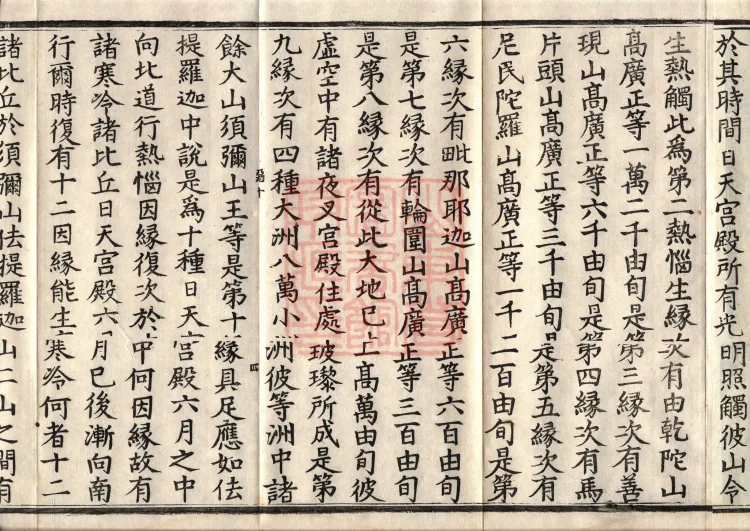 於其時間日天宮殿所有光明照觸彼山令
生熱觸此為第二熱惱生緣次有由乾陀山
髙廣正等一萬二千由旬是第三緣次有善
現山髙廣正等六千由旬是第四緣次有馬
片頭山髙廣正等三千由旬是第五緣次有
尼民陀羅山髙廣正等一千二百由旬是第
六緣次有毗那耶迦山髙廣正等六百由旬
是第七緣次有輪圍山髙廣正等三百由旬
是第八緣次有從此大地已上髙萬由旬彼
虛空中有諸夜叉宮殿住處玻瓈所成是第
九緣次有四種大洲八萬小洲彼等洲中諸
餘大山須彌山王等是第十緣具足應如佉
提羅迦中說是為十種日天宮殿六月之中
向北道行熱惱因緣復次於中何因緣故有
諸寒冷諸比丘日天宮殿六月已後漸向南
行爾時復有十二因緣能生寒冷何者十二
諸比丘於須彌山佉提羅迦山二山之間有